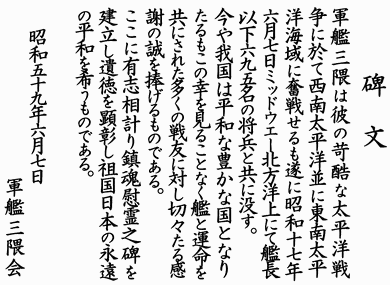 碑文
軍艦三隈は彼の苛酷な太平洋戦
争に於て西南太平洋並に東南太平
洋海域に奮戦せるも遂に昭和十七年
六月七日ミッドウエー北方洋上にて艦長
以下六九五名の将兵と共に没す。
今や我国は平和な豊かな国となり
たるもこの幸を見ることなく艦と運命を
共にされた多くの戦友に対し切々たる感
謝の誠を捧げるものである。
ここに有志相計り鎮魂慰霊之碑を
建立し遺徳を顕彰し祖国日本の永遠
の平和を希うものである。
昭和五十九年六月七日
軍艦三隈会